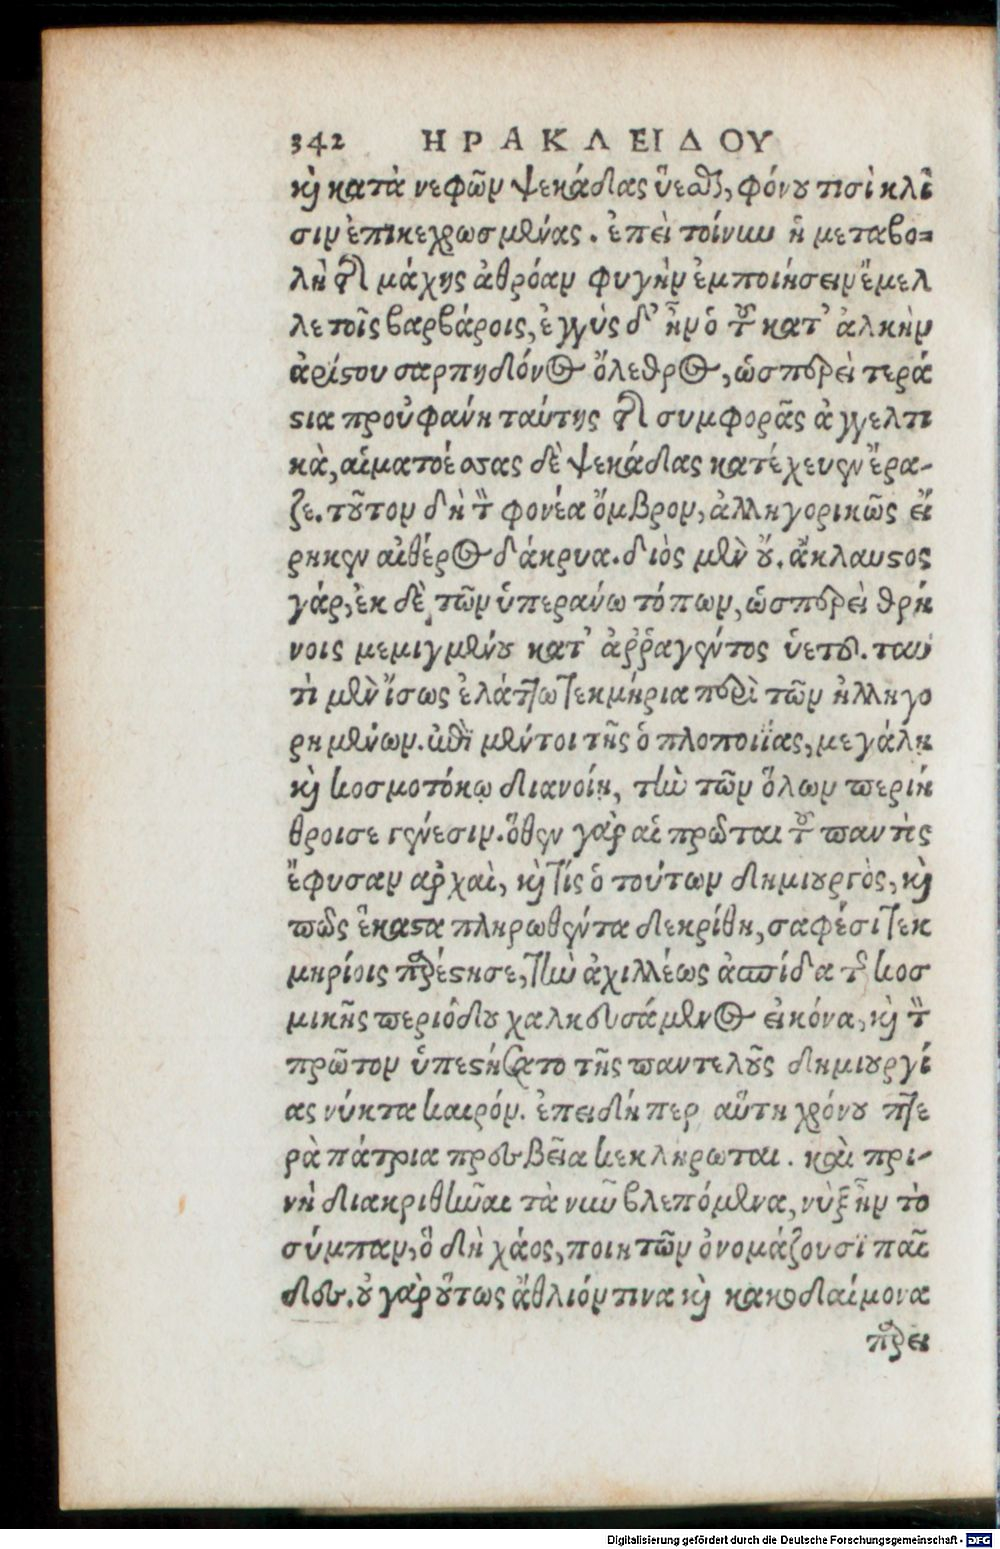 342 ΗΡΑΚΛΕΙΔΟΥ
καὶ κατὰ νεφῶν ψεκάδας ὕεσθαι, φόνου τισὶ κλί
σιν ἐπικεχρωσμένας. ἐπεὶ τοίνυν ἡ μεταβο=
λὴ τῆς μάχης ἀθρόαν φυγὴν ἐμποιήσειν ἔμελ
λε τοῖς βαρβάροις, ἐγγὺς δ' ἦν ὁ τοῦ κατ' ἀλκὴν
ἀρίστου σαρπηδόνος ὄλεθρος, ὡσπερεὶ τερά
στια προὐφάνη ταύτης τῆς συμφορᾶς ἀγγελτι
κὰ, αἱματοέσσας δὲ ψεκάδας κατέχευεν ἔρα-
ζε. τοῦτον δὴ τὸν φονέα ὄμβρον, ἀλληγορικῶς εἴ
ρηκεν αἰθέρος δάκρυα. διὸς μὲν οὔ. ἄκλαυστος
γάρ, ἐκ δὲ τῶν ὑπεράνω τόπων, ὡσπερεὶ θρή
νοις μεμιγμένου κατ' ἀῤῥαγέντος ὑετοῦ. ταυ
τὶ μὲν ἴσως ἐλάττω τεκμήρια περὶ τῶν ἠλληγο
ρημένων. ἐπὶ μέντοι τῆς ὁπλοποιΐας, μεγάλῃ
καὶ κοσμοτόκῳ διανοίῃ, τὴν τῶν ὅλων περιή
θροισε γένεσιν. ὅθεν γὰρ αἱ πρῶται τοῦ παντὸς
ἔφυσαν ἀρχαὶ, καὶ τίς ὁ τούτων δημιουργὸς, καὶ
πῶς ἕκαστα πληρωθέντα διεκρίθη, σαφέσι τεκ
μηρίοις παρέστησε, τὴν ἀχιλλέως ἀσπίδα τῆς κοσ
μικῆς περιόδου χαλκευσάμενος εἰκόνα, καὶ τὸν
πρῶτον ὑπεστήσατο τῆς παντελοῦς δημιουργί
ας νύκτα καιρόν. ἐπειδήπερ αὕτη χρόνου πτε
ρὰ πάτρια πρεσβεῖα κεκλήρωται. καὶ πρι-
νὴ διακριθῆναι τὰ νῦν βλεπόμενα, νὺξ ἦν τὸ
σύμπαν, ὃ δὴ χάος, ποιητῶν ὀνομάζουσι παῖ
δες. οὐ γὰρ οὕτως ἄθλιόν τινα καὶ κακοδαίμονα
παρει
Digitalisierung gefördert durch die Deutsche Forschungsgemeinschaft - DFG